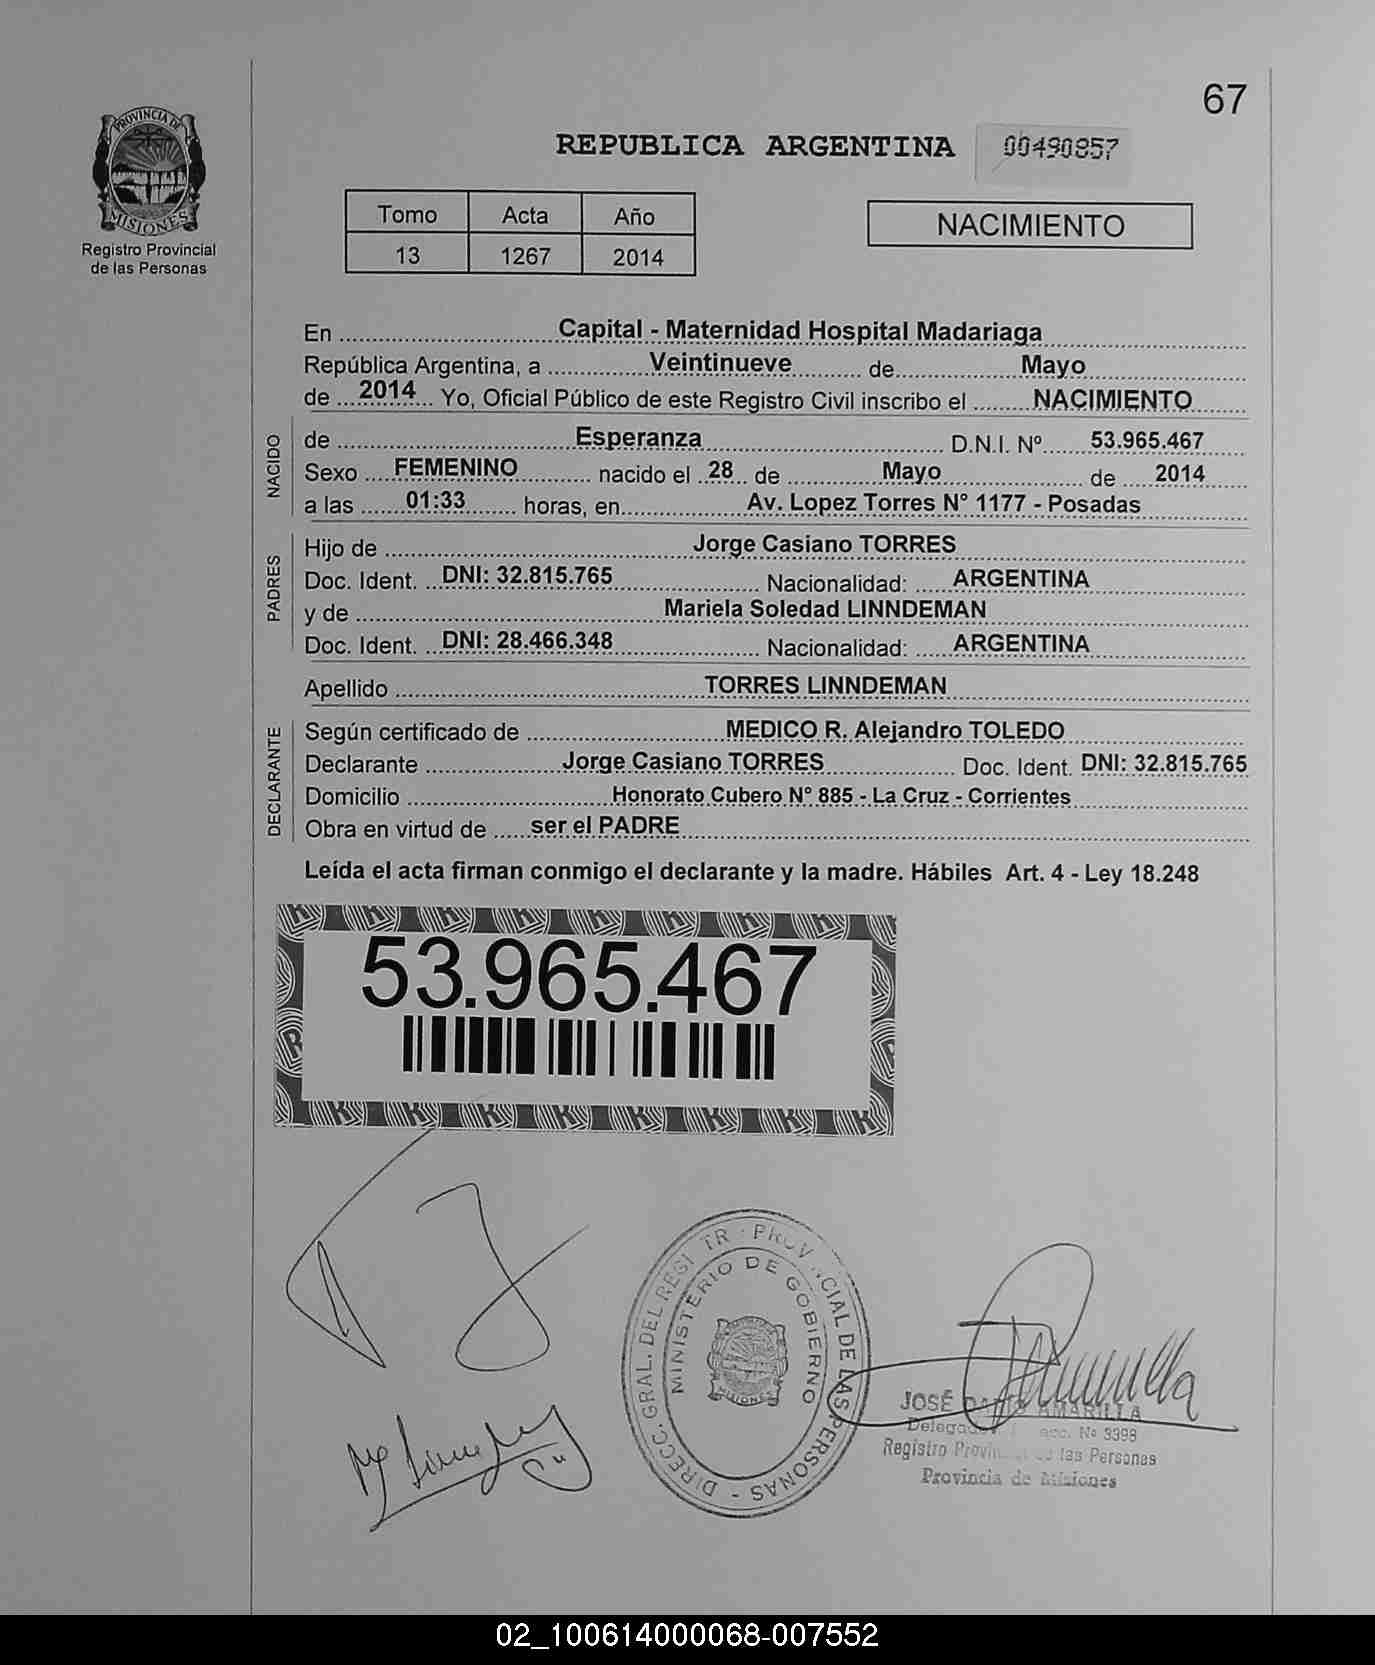 67
PROVINCIA DE
MISIONES
Registro Provincial
de las Personas
REPUBLICA ARGENTINA
00490857
Tomo Acta Año
13 1267 2014
NACIMIENTO
En Capital - Maternidad Hospital Madariaga
República Argentina, a Veintinueve de Mayo
de 2014 Yo, Oficial Público de este Registro Civil inscribo el NACIMIENTO
NACIDO
de Esperanza D.N.I. Nº 53.965.467
Sexo FEMENINO nacido el 28 de Mayo de 2014
a las 01:33 horas, en Av. Lopez Torres N° 1177 - Posadas
PADRES
Hijo de Jorge Casiano TORRES
Doc. Ident. DNI: 32.815.765 Nacionalidad: ARGENTINA
y de Mariela Soledad LINNDEMAN
Doc. Ident. DNI: 28.466.348 Nacionalidad: ARGENTINA
Apellido TORRES LINNDEMAN
DECLARANTE
Según certificado de MEDICO R. Alejandro TOLEDO
Declarante Jorge Casiano TORRES Doc. Ident. DNI: 32.815.765
Domicilio Honorato Cubero N° 885 - La Cruz - Corrientes
Obra en virtud de ser el PADRE
Leída el acta firman conmigo el declarante y la madre. Hábiles Art. 4 - Ley 18.248
53.965.467
DIRECC. GRAL. DEL PROVINCIAL DE LAS PERSONAS -
MINISTERIO DE GOBIERNO
MISIONES
JOSÉ AMARILLA
Nº 3398
Registro las Personas
Provincia de Misiones
02_100614000068-007552